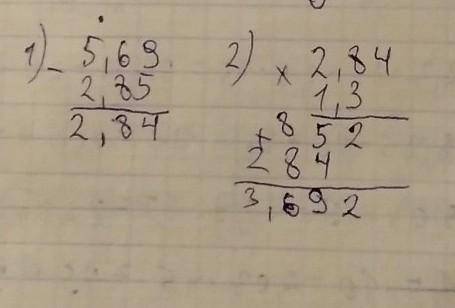 1) - 5,69
2,85
2,84
2) x 2,84
1,3
+ 852
284
3,692